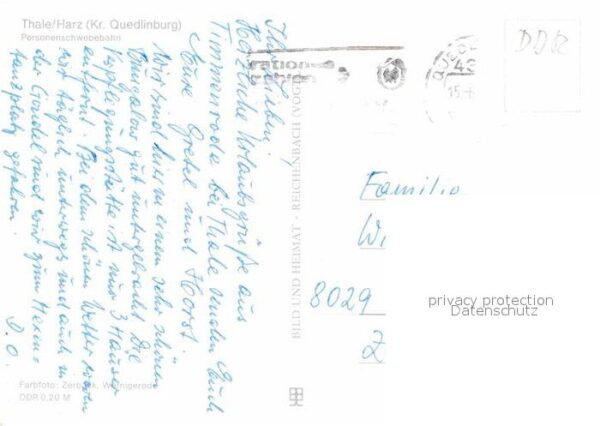 Thale/Harz (Kr. Quedlinburg)
Personenschwebebahn
Ihr Lieben!
Herzliche Urlaubsgrüße aus
Timmenrode bei Thale senden Euch
Eure Gretel und Horst.
Wir sind hier in einem sehr schönen
Bungalow gut untergebracht. Die
Verpflegungsstätte ist nur 3 Häuser
entfernt. Bei dem schönen Wetter waren
wir täglich unterwegs und auch in
der Gondel sind wir zum Hexen-
tanzplatz gefahren.
D. O.
Farbfoto: Wernigerode
DDR 0,20 M
BILD UND HEIMAT · REICHENBACH (VOGTL
DDR
15.
Familie
W
8029
Z
privacy protection
Datenschutz